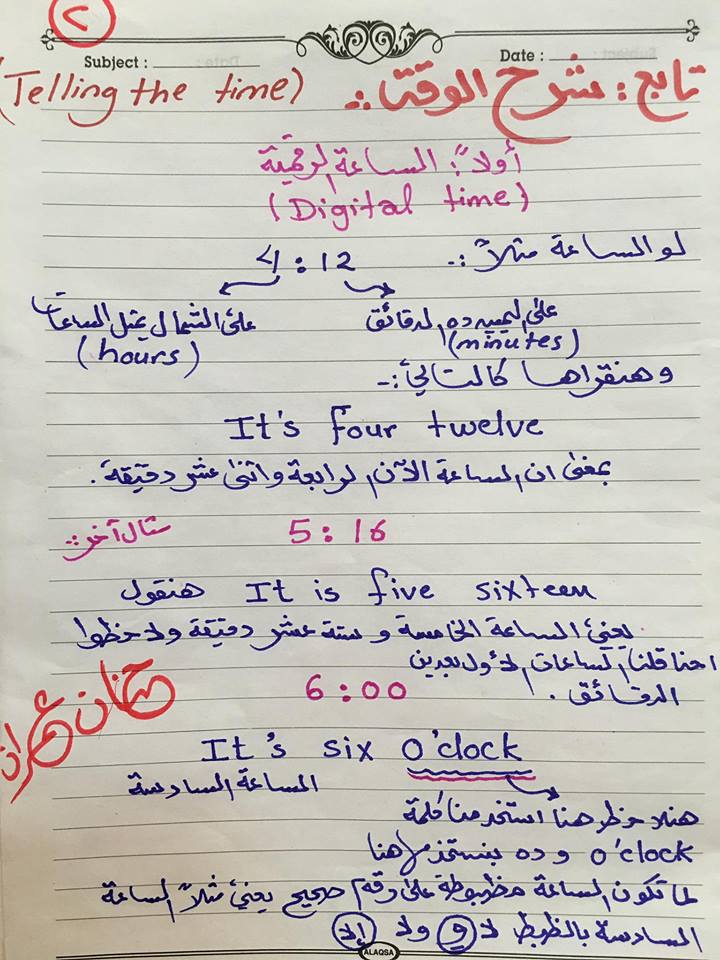 ٢
Subject :
Date :
تابع : شرح الوقت :. (Telling the time)
أولاً : الساعة الرقمية
(Digital time)
لو الساعة مثلاً :- 4 : 12
على اليمين ده الدقائق
(minutes)
على الشمال يمثل الساعات
(hours)
وهنقراها كالتالي :-
It's four twelve
بمعنى ان الساعة الآن الرابعة واثنى عشر دقيقة .
مثال آخر : 5 : 16
هنقول It is five sixteen
يعني الساعة الخامسة وستة عشر دقيقة ولاحظوا
احنا قلنا الساعات الأول بعدين
الدقائق .
6 : 00
حنان عمران
It's six o'clock
الساعة السادسة
هنلاحظ هنا استخدمنا كلمة
o'clock وده بنستخدمها هنا
لما تكون الساعة مظبوطة على رقم صحيح يعني مثلاً الساعة
السادسة بالظبط لا و ولا إلا
ALAQSA